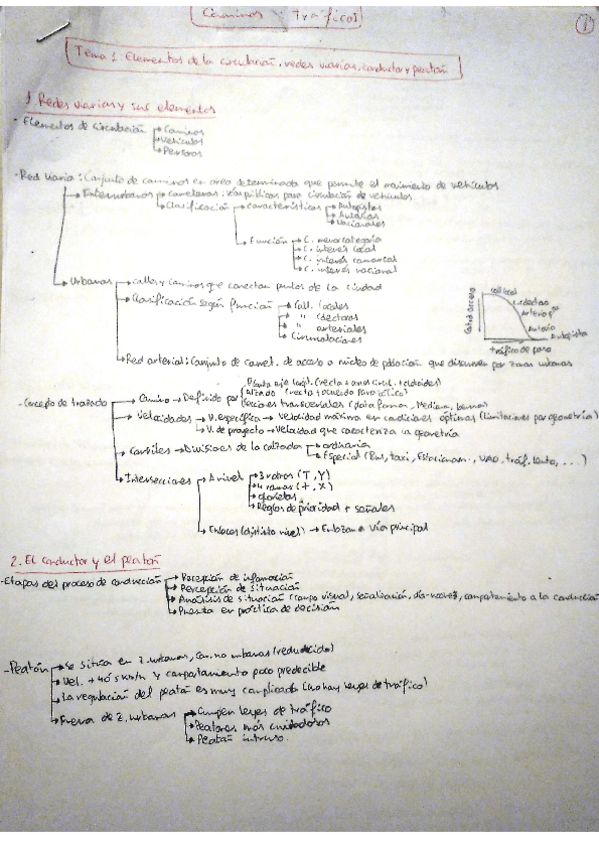 Caminos : Tráficos
1
Tema 1: Elementos de la circulación, redes viarias, conductor y peatón
1 Redes viarias y sus elementos
- Elementos de circulación → Caminos
→ Vehículos
→ Personas
- Red viaria: Conjunto de caminos en área determinada que permite el movimiento de vehículos
→ Interurbanos → carreteras: vías públicas para circulación de vehículos
→ Clasificación → características → Autopistas
→ Autovías
→ Función → C. menor categoría
→ C. interés local
→ C. interés comarcal
→ C. interés nacional
→ Urbanas → calles y caminos que conectan puntos de la ciudad
→ Clasificación según función → Call. locales
→ " colectoras
→ " arteriales
→ Circunvalaciones
Control acceso
call local
Autovía
Autopista
tráfico de paso
→ Red arterial: Conjunto de carret. de acceso a núcleo de población que discurren por zonas urbanas
- Concepto de trazado → Camino → Definido por
→ Velocidades → V. específica → Velocidad máxima en condiciones óptimas (limitaciones por geometría)
→ V. de proyecto → Velocidad que caracteriza la geometría
→ Carriles → Divisiones de la calzada → ordinaria
→ Especial (Bus, taxi, Estacionam., VAO, tráf. lento, ...)
→ Intersecciones → A nivel → 3 ramas (T, Y)
→ 4 ramas (+, X)
→ glorietas
→ Reglas de prioridad + señales
→ Enlaces (distinto nivel) → Enlazan a vía principal
2. El conductor y el peatón
- Etapas del proceso de conducción → Recepción de información
→ Percepción de situación
→ Análisis de situación (campo visual, señalización, día-noche), comportamiento a la conducción
→ Puesta en práctica de decisión
- Peatón → Se sitúa en z. urbanas, can. no urbanas (reducido)
→ Vel. km/h y comportamiento poco predecible
→ La regulación del peatón es muy complicada (no hay leyes de tráfico)
→ Fuera de z. urbanas → Cumplen leyes de tráfico
→ Peatones más cuidadosos
→ Peatón intruso.